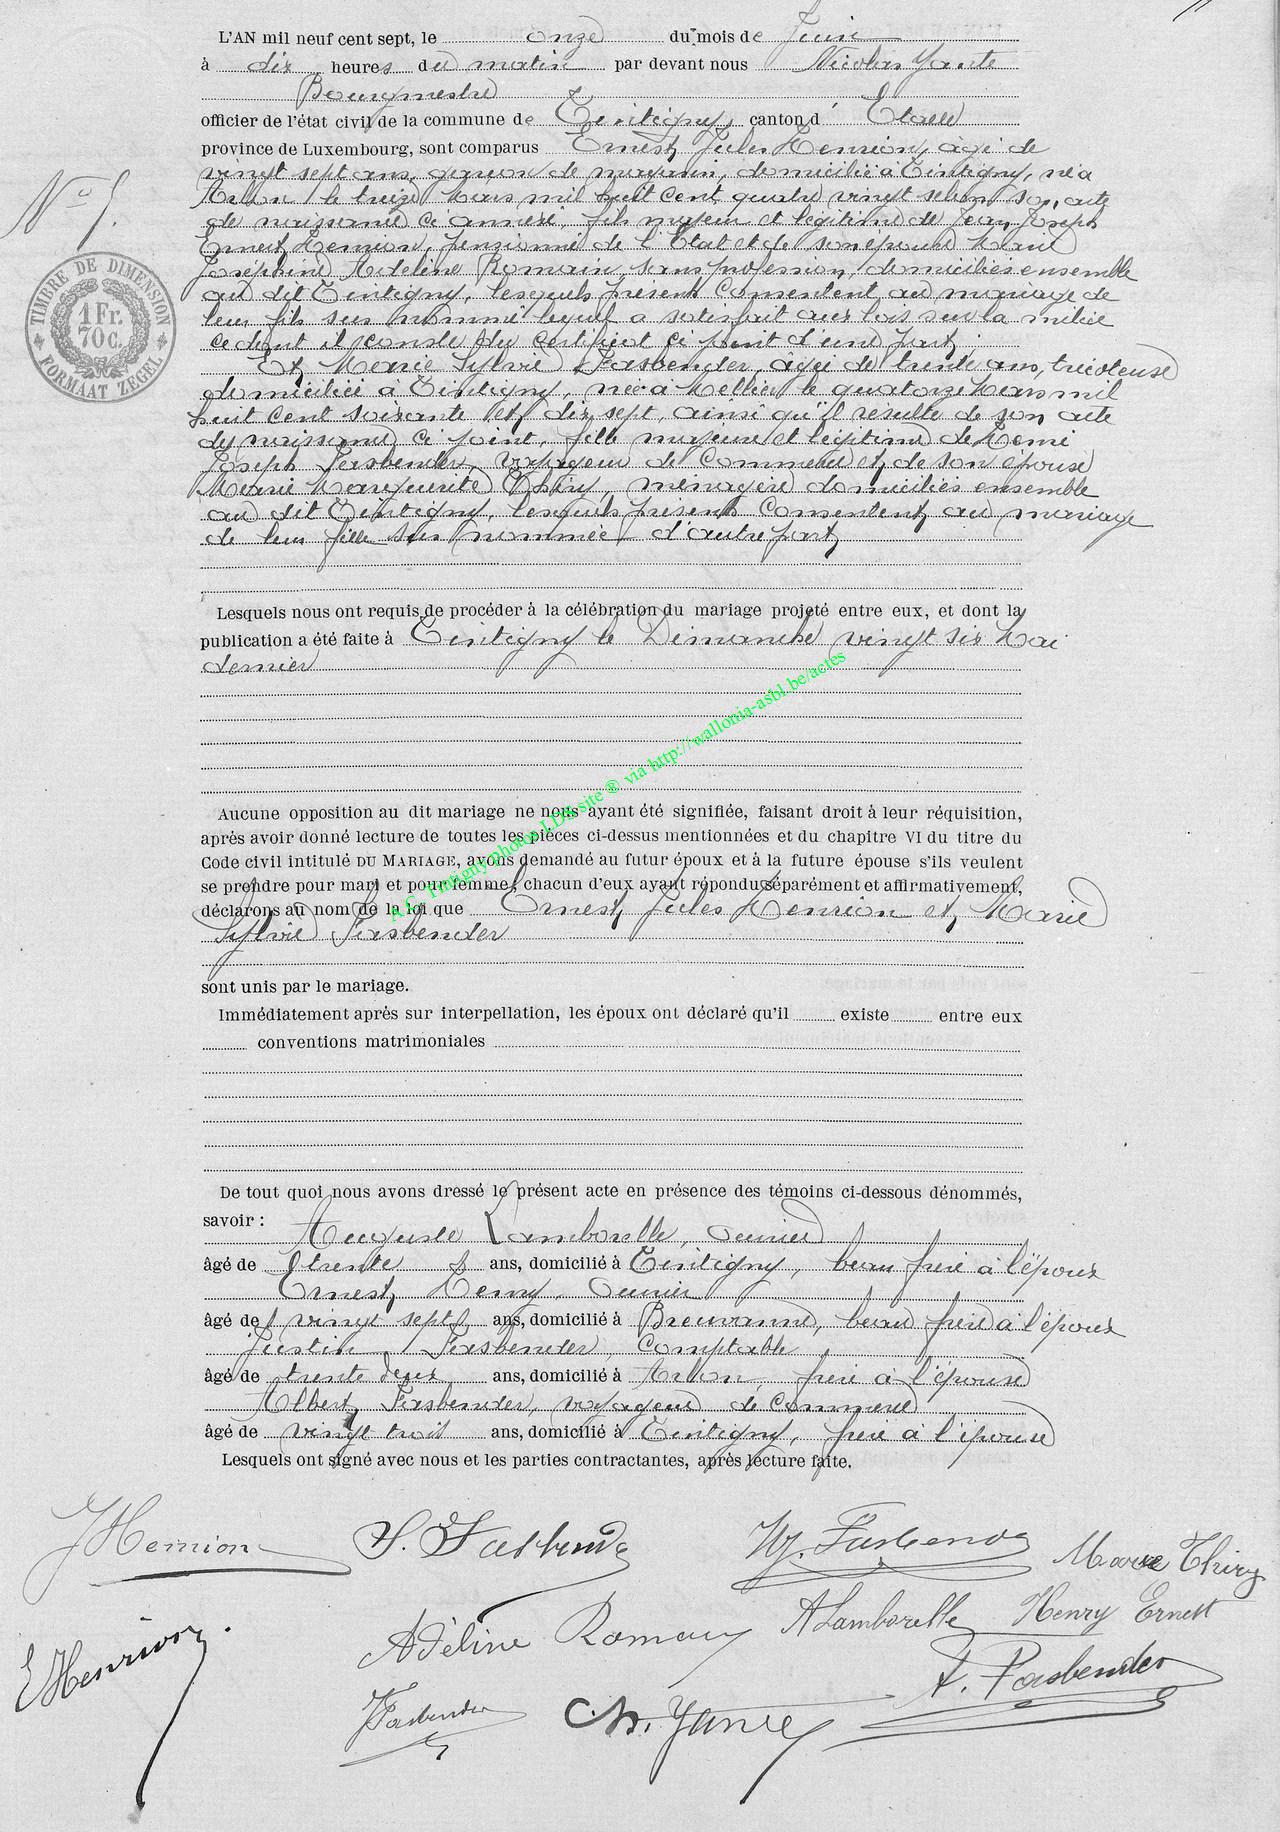 L'AN mil neuf cent sept, le onze du mois de Juin
à dix heures du matin par devant nous Nicolas Yante
Bourgmestre
officier de l'état civil de la commune de Tintigny, canton d' Etalle
province de Luxembourg, sont comparus Ernest Jules Henrion, âgé de
vingt sept ans, garçon de magasin, domicilié à Tintigny, né à
Arlon le treize Mars mil huit cent quatre vingt selon son acte
de naissance ci annexé, fils majeur et légitime de Jean Joseph
Ernest Henrion, pensionné de l'Etat et de son épouse Marie
Joséphine Adeline Romain, sans profession, domiciliés ensemble
au dit Tintigny, lesquels présents consentent au mariage de
leur fils sus nommé lequel a satisfait aux lois sur la milice
ce dont il conste du certificat ci joint d'une part
Et Marie Sylvie Fasbender, âgée de trente ans, tricoteuse
domiciliée à Tintigny, née à Mellier le quatorze Mars mil
huit cent soixante et dix sept, ainsi qu'il résulte de son acte
de naissance ci joint, fille majeure et légitime de
Joseph Fasbender, voyageur de commerce et de son épouse
Marie Marguerite Thiry, ménagère domiciliés ensemble
au dit Tintigny, lesquels présents consentent au mariage
de leur fille sus nommée d'autre part
Lesquels nous ont requis de procéder à la célébration du mariage projeté entre eux, et dont la
publication a été faite à Tintigny le Dimanche vingt six Mai
dernier
Aucune opposition au dit mariage ne nous ayant été signifiée, faisant droit à leur réquisition,
après avoir donné lecture de toutes les pièces ci-dessus mentionnées et du chapitre VI du titre du
Code civil intitulé DU MARIAGE, avons demandé au futur époux et à la future épouse s'ils veulent
se prendre pour mari et pour femme; chacun d'eux ayant répondu séparément et affirmativement,
déclarons au nom de la loi que Ernest Jules Henrion et Marie
Sylvie Fasbender
sont unis par le mariage.
Immédiatement après sur interpellation, les époux ont déclaré qu'il existe entre eux
conventions matrimoniales
De tout quoi nous avons dressé le présent acte en présence des témoins ci-dessous dénommés,
savoir : Auguste Lamborelle, ouvrier
âgé de trente ans, domicilié à Tintigny, beau frère à l'époux
Ernest Henry, ouvrier
âgé de vingt sept ans, domicilié à Breuvanne, beau frère à l'époux
Justin Fasbender, comptable
âgé de trente deux ans, domicilié à Arlon, frère à l'épouse
Albert Fasbender, voyageur de commerce
âgé de vingt trois ans, domicilié à Tintigny, frère à l'épouse
Lesquels ont signé avec nous et les parties contractantes, après lecture faite.
N° 5.
TIMBRE DE DIMENSION
1 Fr.
70 c.
FORMAAT ZEGEL
A.C. Tintigny photos LDS site ® via http://wallonia-asbl.be/actes
JHenrion S. Fasbender Fasbender Marie Thiry
E Henrion. Adéline Romain ALamborelle Henry Ernest
JFasbender Yante A. Fasbender